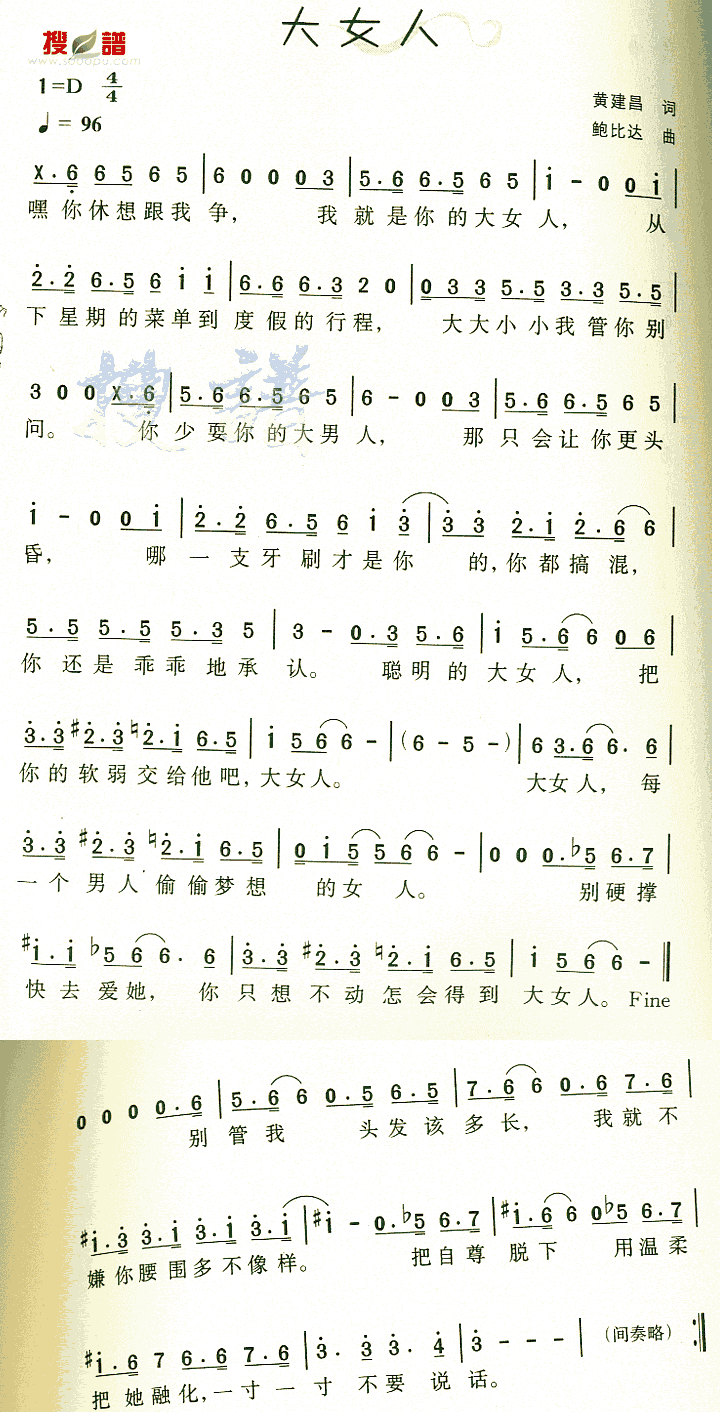 大女人
搜譜
www.sooopu.com
1=D 4/4
黄建昌 词
♩= 96
鲍比达 曲
X.6 6 5 6 5 | 6 0 0 0 3 | 5.6 6.5 6 5 | i - 0 0 i |
嘿 你 休 想 跟 我 争， 我 就 是 你 的 大 女 人， 从
2.2 6.5 6 i i | 6.6 6.3 2 0 | 0 3 3 5.5 3.3 5.5 |
下 星 期 的 菜 单 到 度 假 的 行 程， 大 大 小 小 我 管 你 别
3 0 0 X.6 | 5.6 6.5 6 5 | 6 - 0 0 3 | 5.6 6.5 6 5 |
问。 你 少 耍 你 的 大 男 人， 那 只 会 让 你 更 头
i - 0 0 i | 2.2 6.5 6 i 3 | 3 3 2.i 2.6 6 |
昏， 哪 一 支 牙 刷 才 是 你 的，你 都 搞 混，
5.5 5.5 5.3 5 | 3 - 0.3 5.6 | i 5.6 6 0 6 |
你 还 是 乖 乖 地 承 认。 聪 明 的 大 女 人， 把
3.3 #2.3 ♮2.i 6.5 | i 5 6 6 - | (6 - 5 -) | 6 3.6 6. 6 |
你 的 软 弱 交 给 他 吧，大 女 人。 大 女 人， 每
3.3 #2.3 ♮2.i 6.5 | 0 i 5 5 6 6 - | 0 0 0.♭5 6.7 |
一 个 男 人 偷 偷 梦 想 的 女 人。 别 硬 撑
#i.i ♭5 6 6. 6 | 3.3 #2.3 ♮2.i 6.5 | i 5 6 6 - ‖
快 去 爱 她， 你 只 想 不 动 怎 会 得 到 大 女 人。Fine
0 0 0 0.6 | 5.6 6 0.5 6.5 | 7.6 6 0.6 7.6 |
别 管 我 头 发 该 多 长， 我 就 不
#i.3 3.i 3.i 3.i | #i - 0.♭5 6.7 | #i.6 6 0♭5 6.7 |
嫌 你 腰 围 多 不 像 样。 把 自 尊 脱 下 用 温 柔
#i.6 7 6.6 7.6 | 3. 3 3. 4 | 3 - - - | （间奏略） :‖
把 她 融 化，一 寸 一 寸 不 要 说 话。